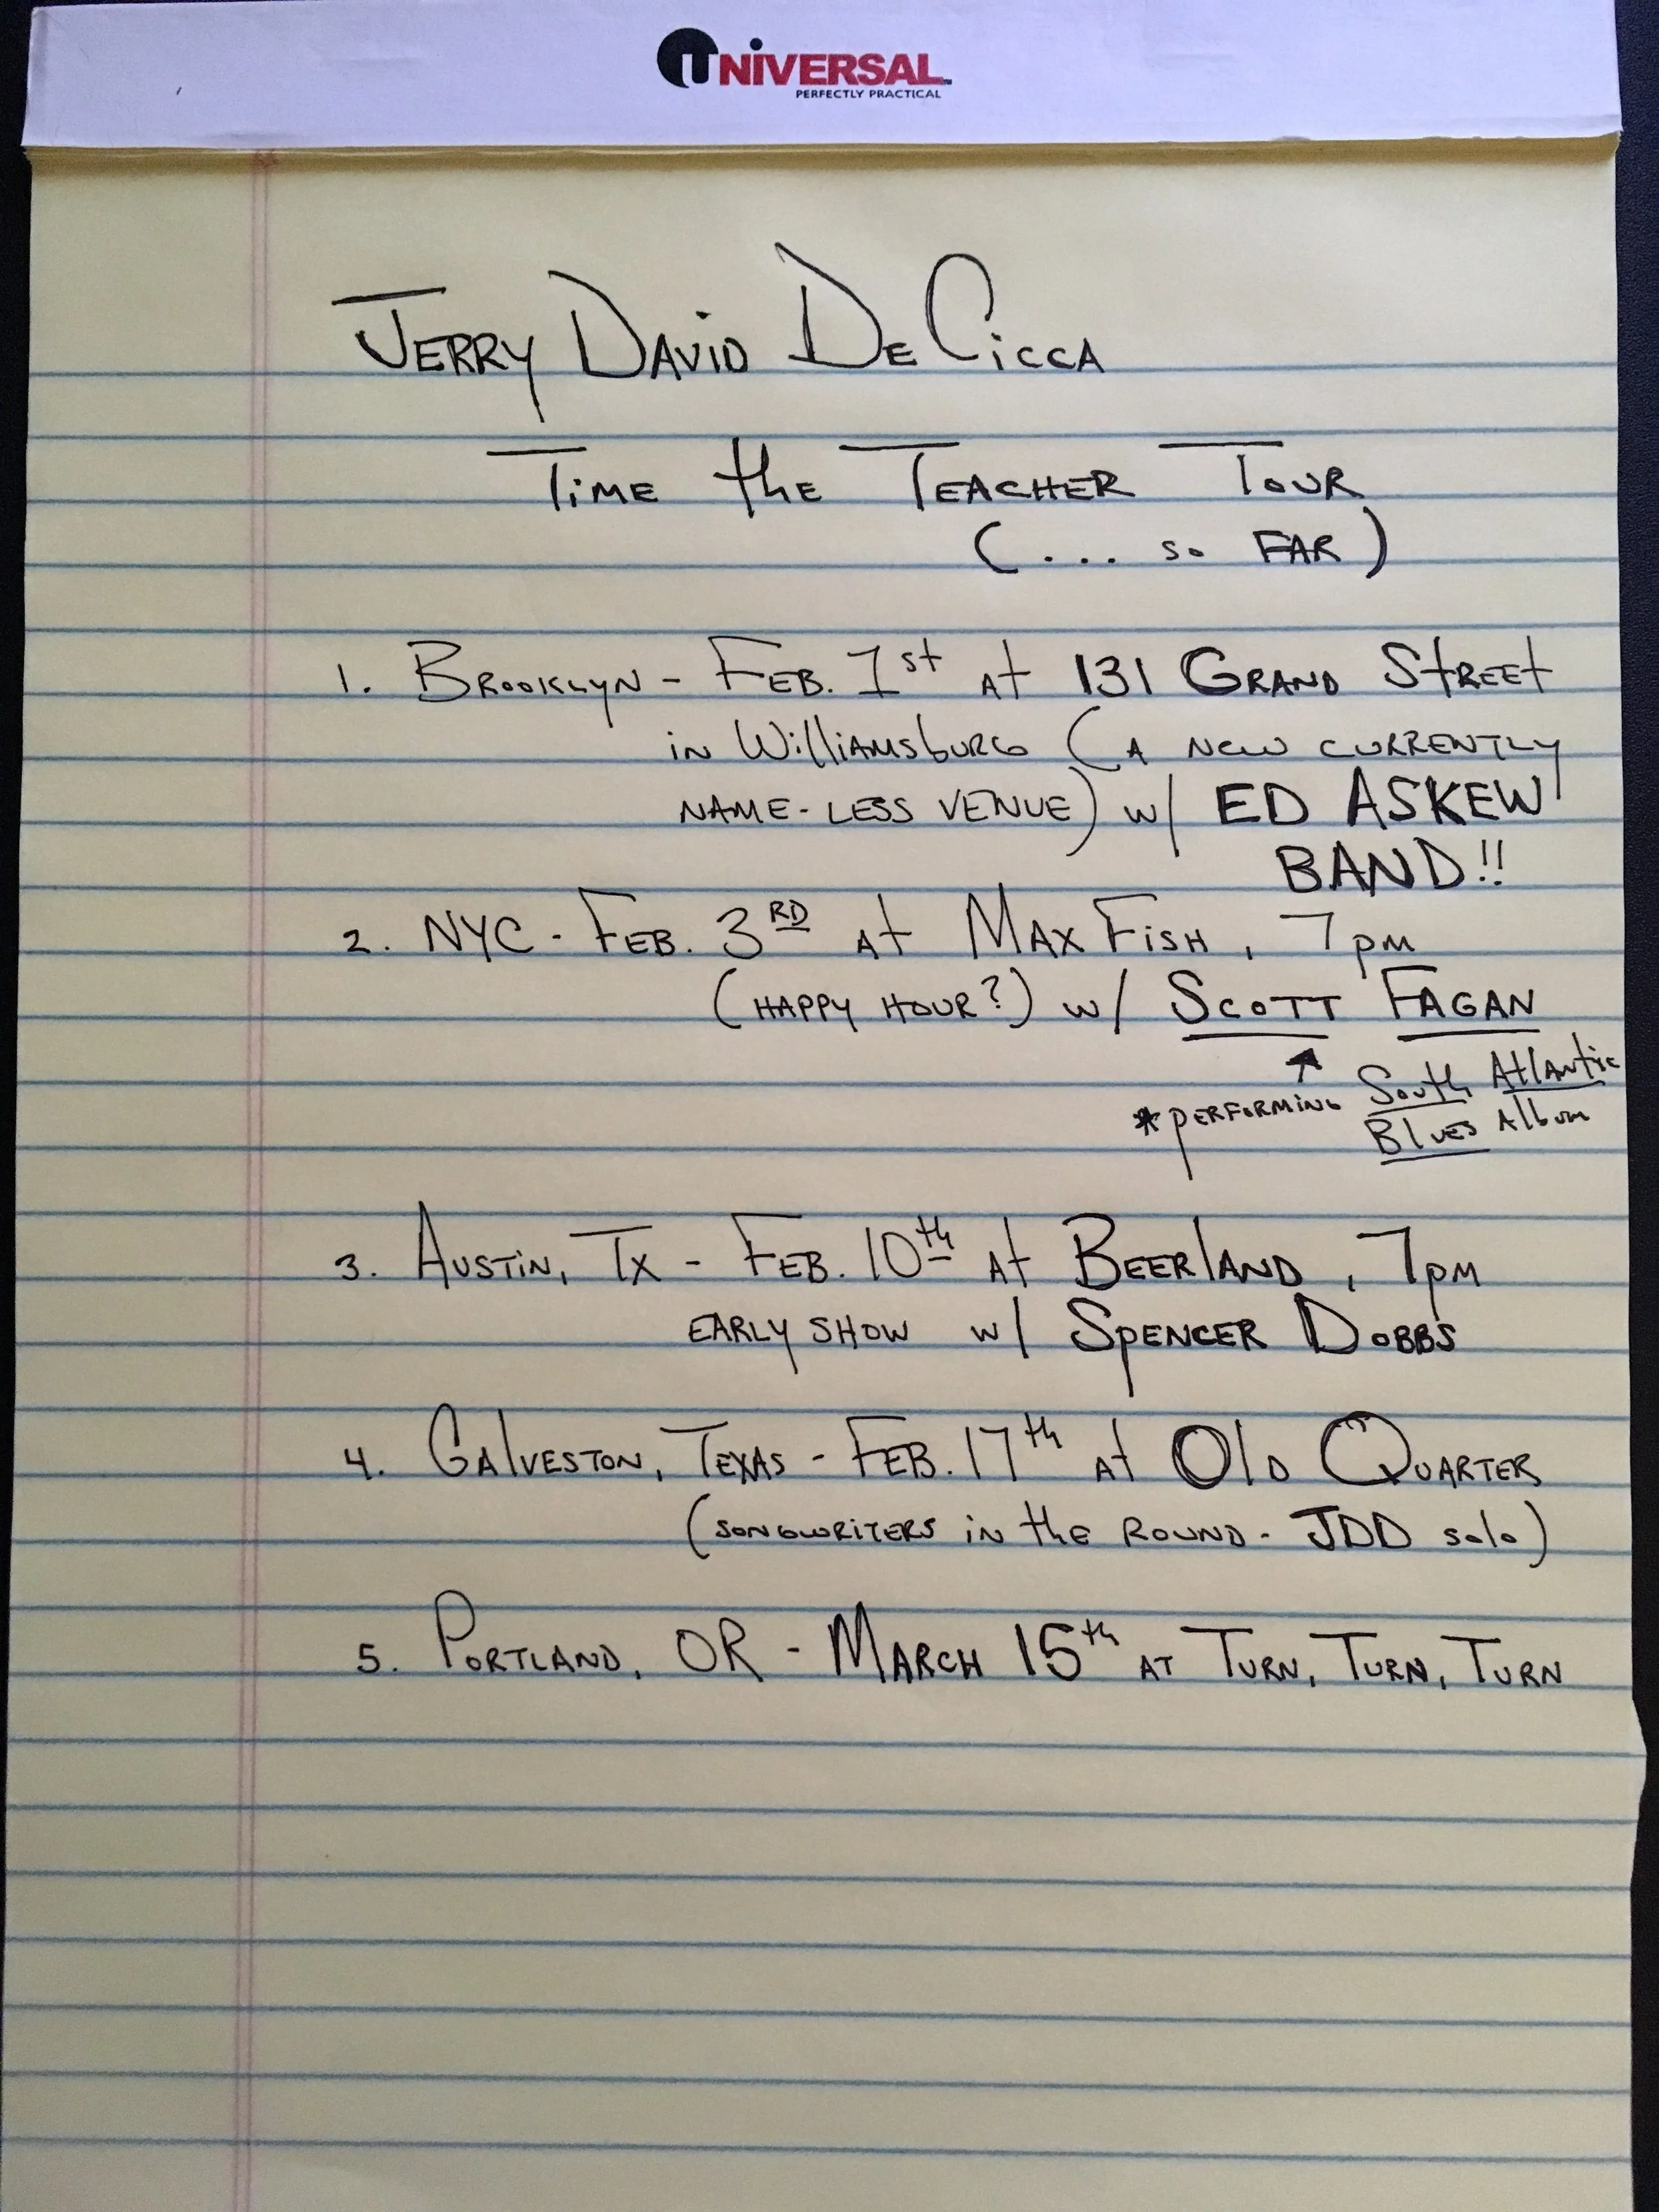 UNIVERSAL
PERFECTLY PRACTICAL
JERRY DAVID DE CICCA
TIME the TEACHER TOUR
(... so FAR)
1. BROOKLYN - FEB. 1st AT 131 GRAND STREET
in WilliAMSbURG (A NEW CURRENTLY
NAME-LESS VENUE) w/ ED ASKEW
BAND!!
2. NYC - FEB. 3RD AT MAX FISH, 7pm
(HAPPY HOUR?) w/ SCOTT FAGAN
*PERFORMING South Atlantic
Blues Album
3. AUSTIN, TX - FEB. 10th At BEERlAND, 7pm
EARLY SHOW w/ SPENCER DOBBS
4. GAlVESTON, TEXAS - FEB. 17th At OlD QUARTER
(SONGWRITERS in the ROUND - JDD solo)
5. PORTLAND, OR - MARCH 15th AT TURN, TURN, TURN